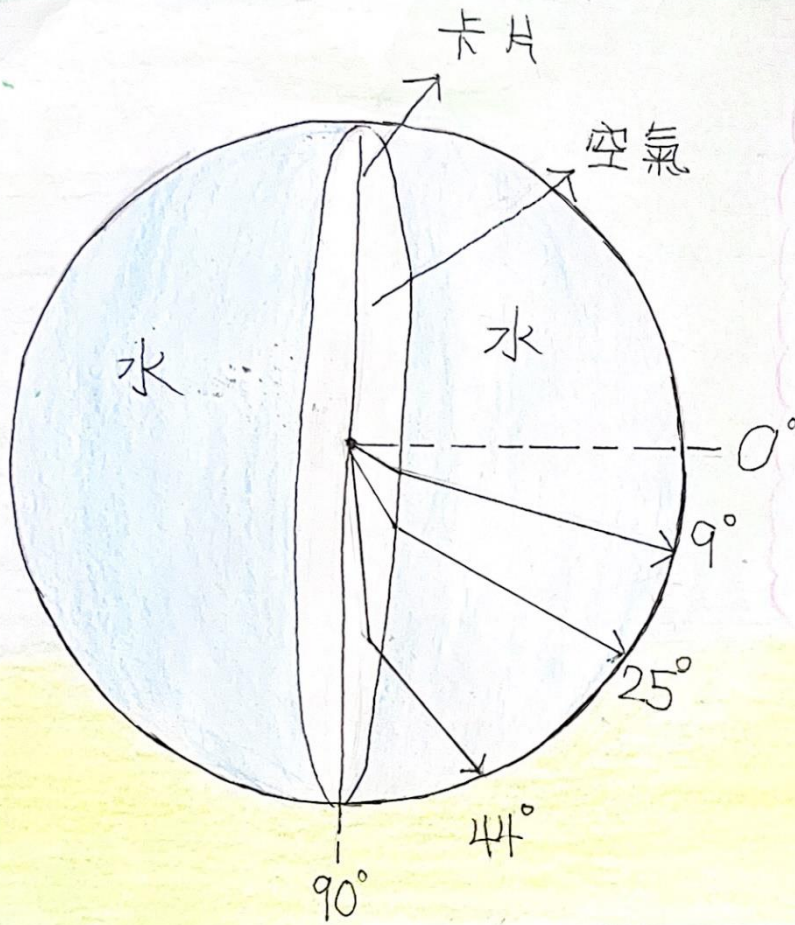 卡片
空氣
水
水
0°
9°
25°
44°
90°